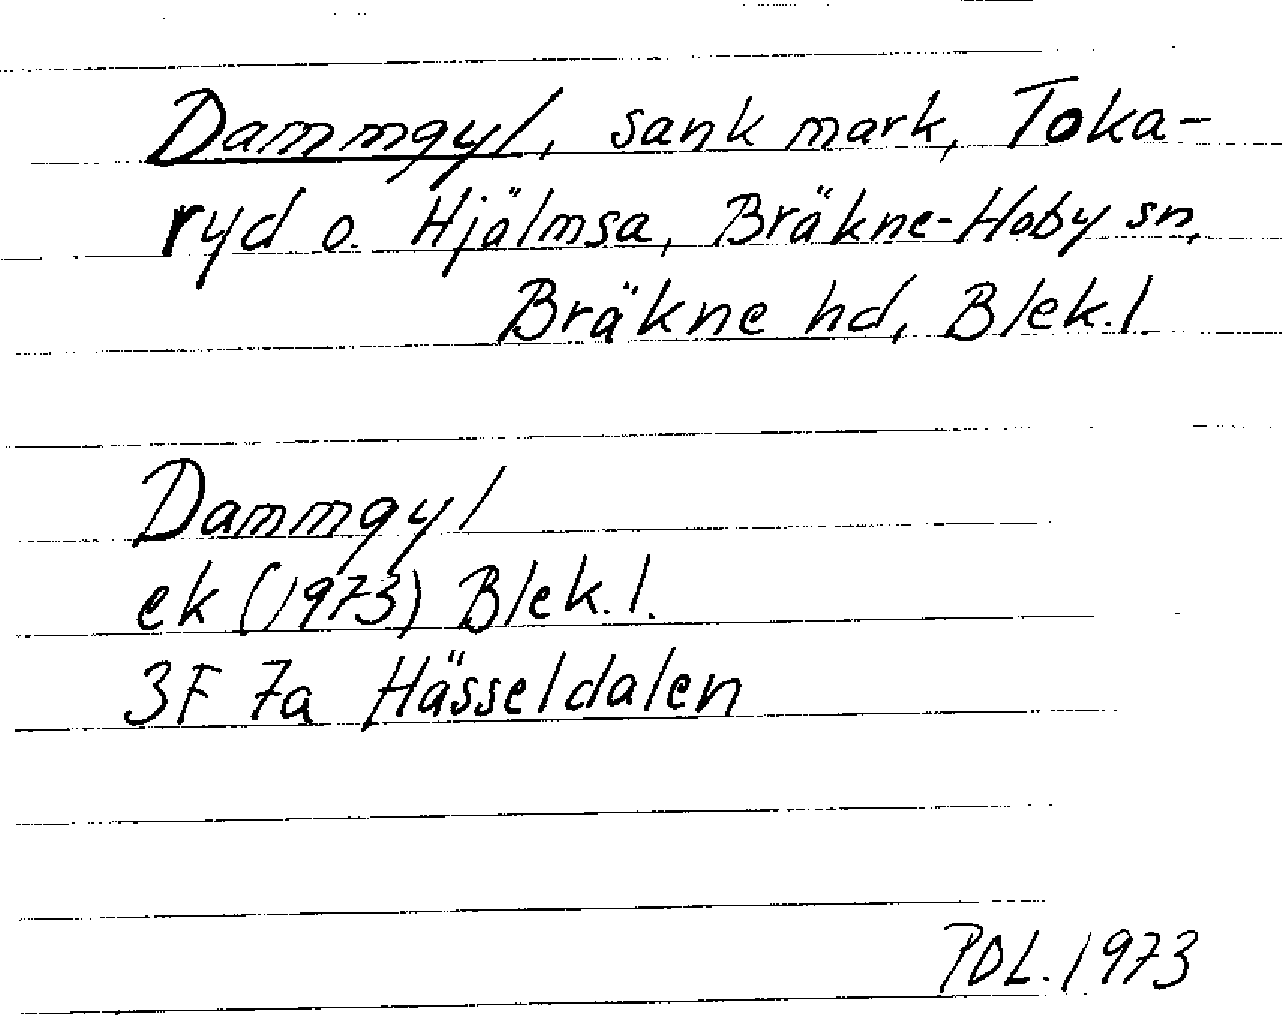 Dammgyl, sank mark, Toka-
ryd o. Hjälmsa, Bräkne-Hoby sn,
Bräkne hd, Blek. l.
Dammgyl
ek (1973) Blek. l.
3F 7a Hässeldalen
PDL. 1973